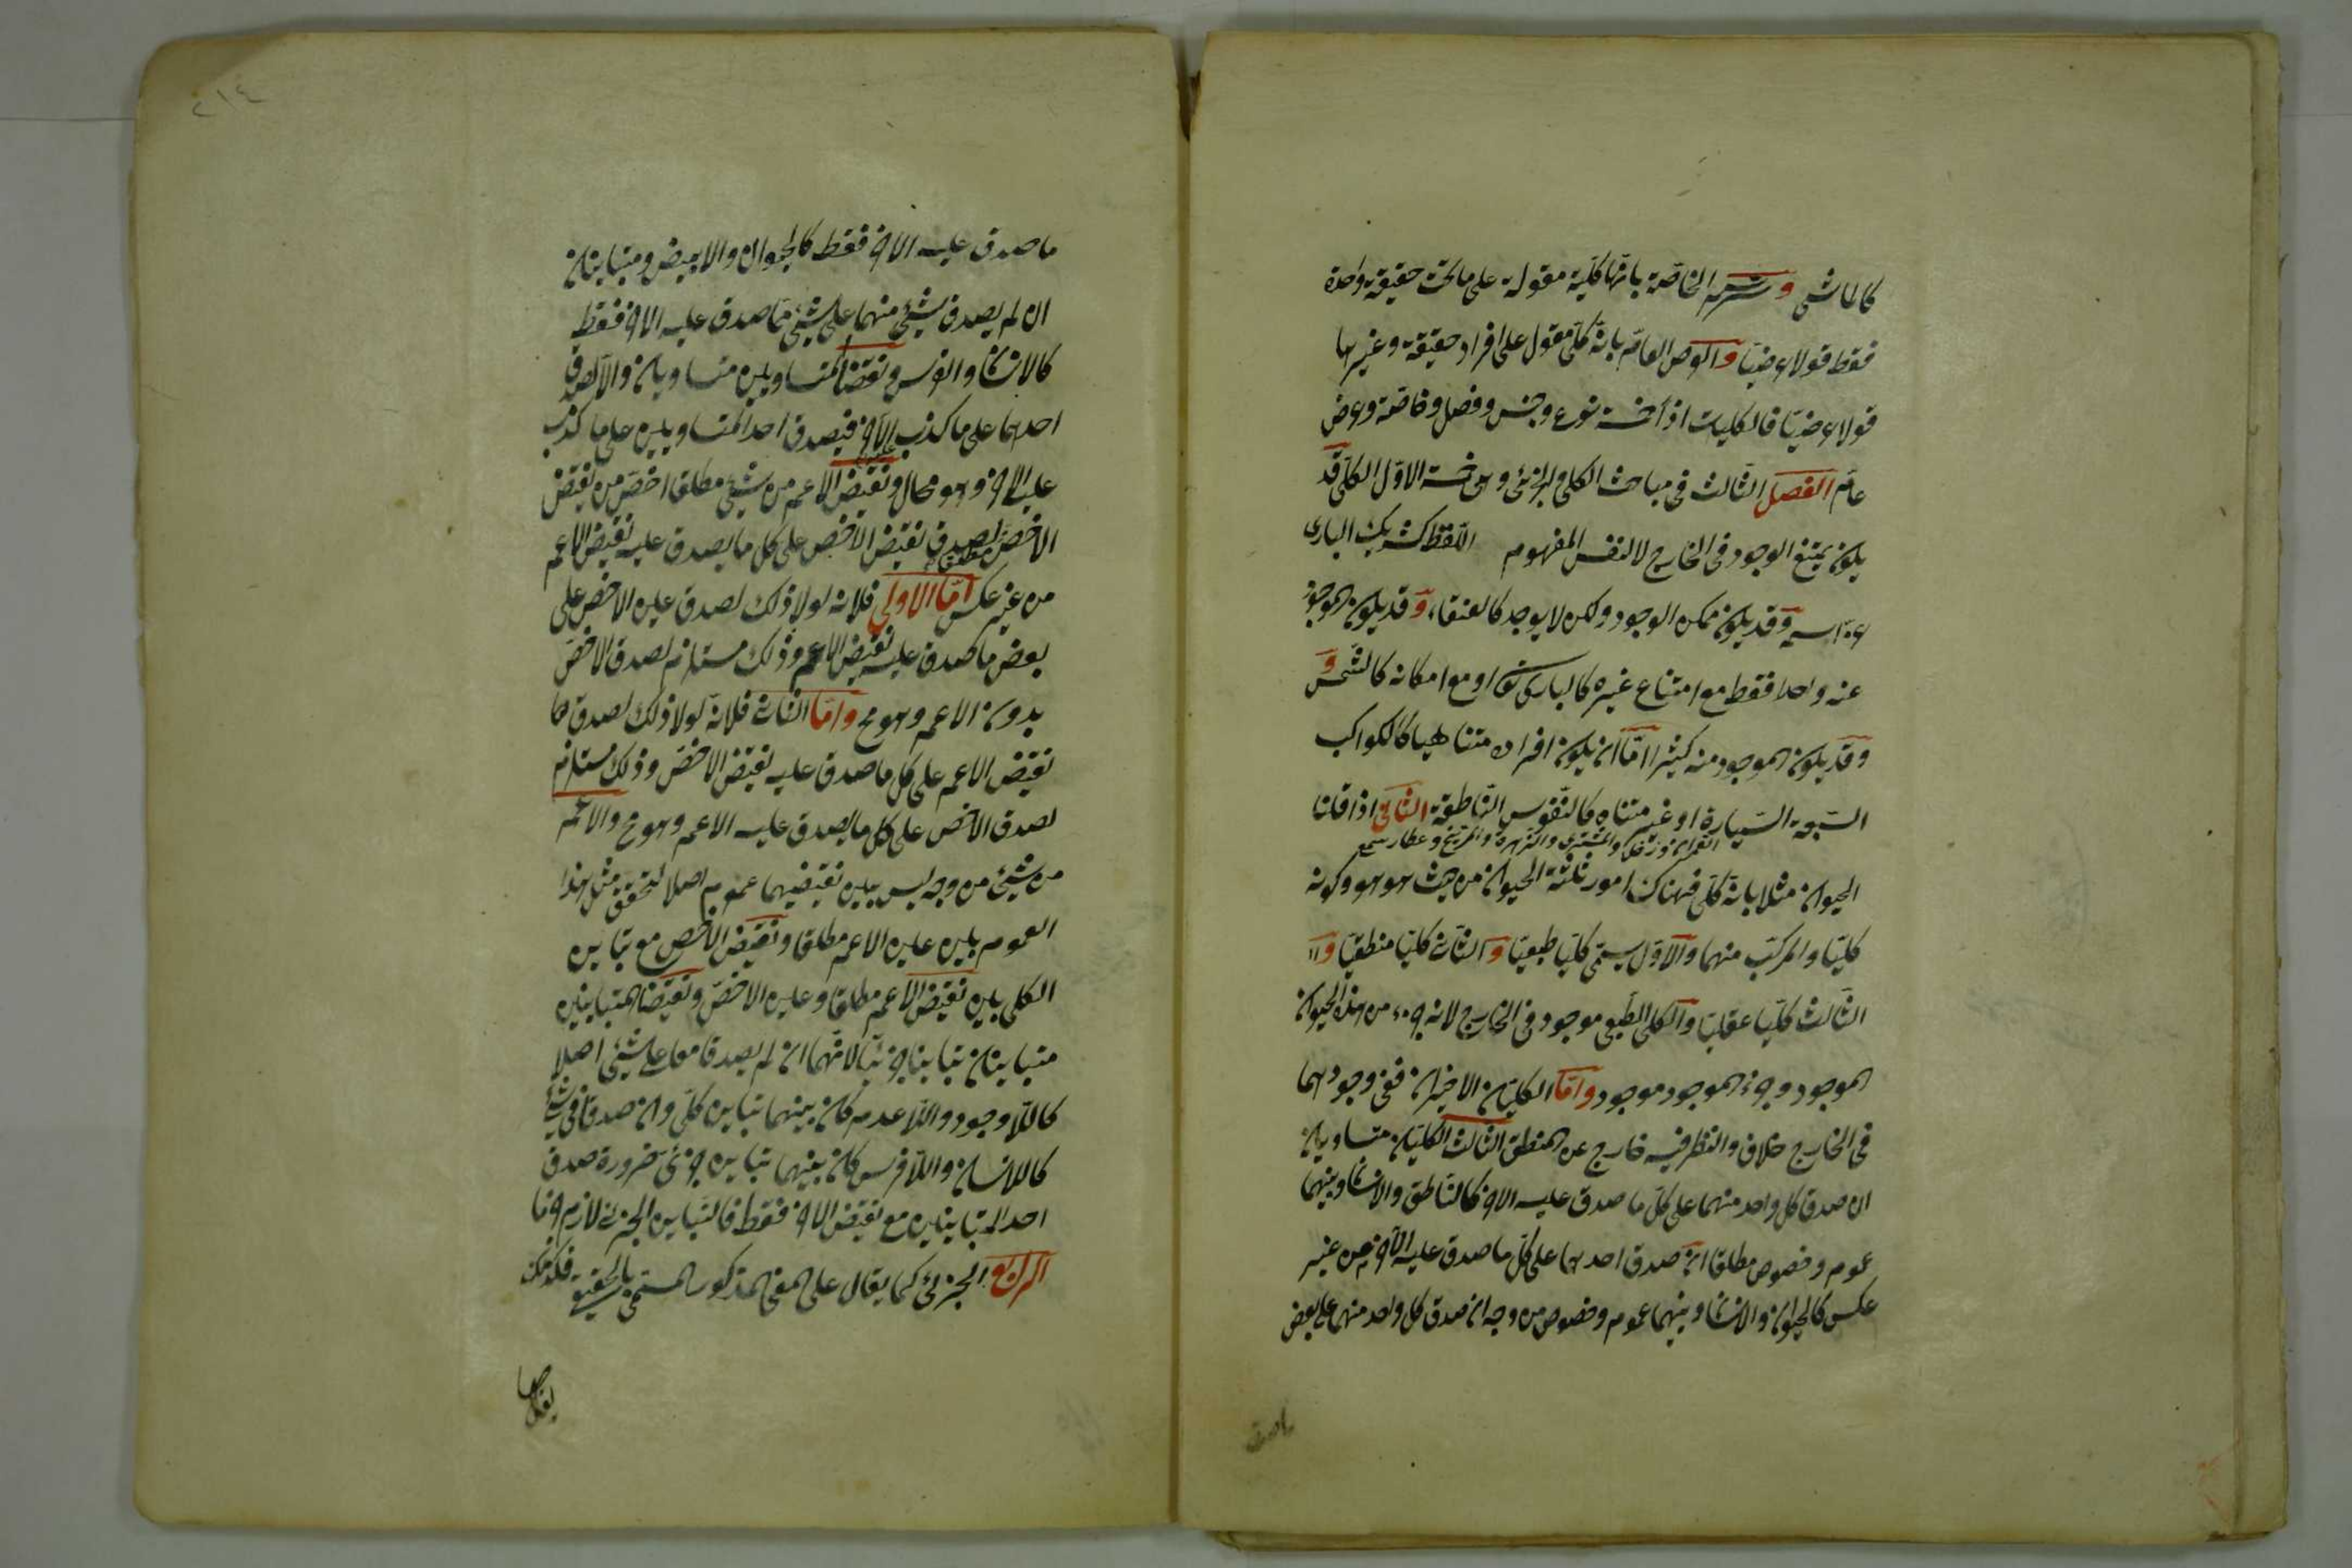 كالماشى و ترسم الخاصّة بانّها كلّية مقولة على ما تحت حقيقة واحدة
فقط قولا عرضيّا والعرض العامّ بانّه كلّى مقول على افراد حقيقة وغيرها
قولا عرضيّا فالكليات اذاً خمسة نوع وجنس وفصل وخاصّة وعرض
عامّ الفصل الثّالث فى مباحث الكلى والجزئى وهى خمسة الاوّل الكلّى قد
يكون ممتنع الوجود فى الخارج لا لنفس المفهوم اللّفظ كشريك البارى
عزّ اسمه وقد يكون ممكن الوجود ولكن لا يوجد كالعنقاء وقد يكون الموجود
عنه واحدا فقط مع امتناع غيره كالبارى تعالى او مع امكانه كالشّمس و
وقد يكون الموجود منه كثيرا امّا ان يكون افراده متناهيا كالكواكب
السّبعة السّيارة او غير متناه كالنّفوس النّاطقة الثّانى اذا قلنا
القمر وزحل والمشترى والزهرة والمرّيخ وعطارد شمع
الحيوان مثلا بانّه كلّى فهناك امور ثلثة الحيوان من حيث هو هو وكونه
كليّا والمركّب منهما والاوّل يسمّى كليّا طبعيّا والثّانى كليّا منطقيّا و
الثّالث كليّا عقليّا والكلى الطّبعى موجود فى الخارج لانه جزء من هذا الحيوان
الموجود وجزء الموجود موجود وامّا الكليّان الاخيران ففى وجودهما
فى الخارج خلاف والنظر فيه خارج عن المنطق الثّالث الكليّان متساويان
ان صدق كل واحد منهما على كلّ ما صدق عليه الاخر كالنّاطق والانسان وبينهما
عموم وخصوص مطلقا ان صدق احدهما على كلّ ما صدق عليه الآخر من غير
عكس كالحيوان والانسان وبينهما عموم وخصوص من وجه ان صدق كل واحد منهما على بعض
ما صدق
ما صدق عليه الاخر فقط كالحيوان والابيض ومتباينان
ان لم يصدق شيئ منهما على شيئ ممّا صدق عليه الاخر فقط
كالانسان والفرس و نقيضا المتساويين متساويان والّا لصدق
احدهما على ما كذب الآخر فيصدق احد المتساويين على ما كذب
عليه الاخر وهو محال ونقيض الاعم من شيئ مطلقا اخصّ من نقيض
الاخصّ لصدق نقيض الاخص على كل ما يصدق عليه نقيض الاعم
من غير عكس امّا الاولى فلانه لولا ذلك لصدق عين الاخص على
بعض ما صدق عليه نقيض الاعم وذلك مستلزم لصدق الاخصّ
بدون الاعم وهو مح وامّا الثانى فلانّه لولا ذلك لصدق
نقيض الاعم على كل ما صدق عليه نقيض الاخصّ وذلك مستلزم
لصدق الاخص على كل ما يصدق عليه الاعم وهو مح والاعمّ
من شيئ من وجه ليس بين نقيضيهما عموم اصلا لتحقق مثل هذا
العموم بين عين الاعم مطلقا ونقيض الاخص مع تباين
الكلى بين نقيض الاعم مطلقا وعين الاخصّ ونقيضا المتباينين
متباينان تباينا جزئيّا لانّهما ان لم يصدقا معا على شيئ اصلا
كاللّاوجود واللّاعدم كان بينهما تباين كلّى وان صدقا فى شيئ
كاللاانسان واللّافرس كان بينهما تباين جزئى ضرورة صدق
احد المتباينين مع نقيض الاخر فقط فالتّباين الجزئى لازم جزما
الرابع الجزئى كما يقال على المعنى المذكور المسمّى بالحقيقى فكذلك
يقال
٢١٤